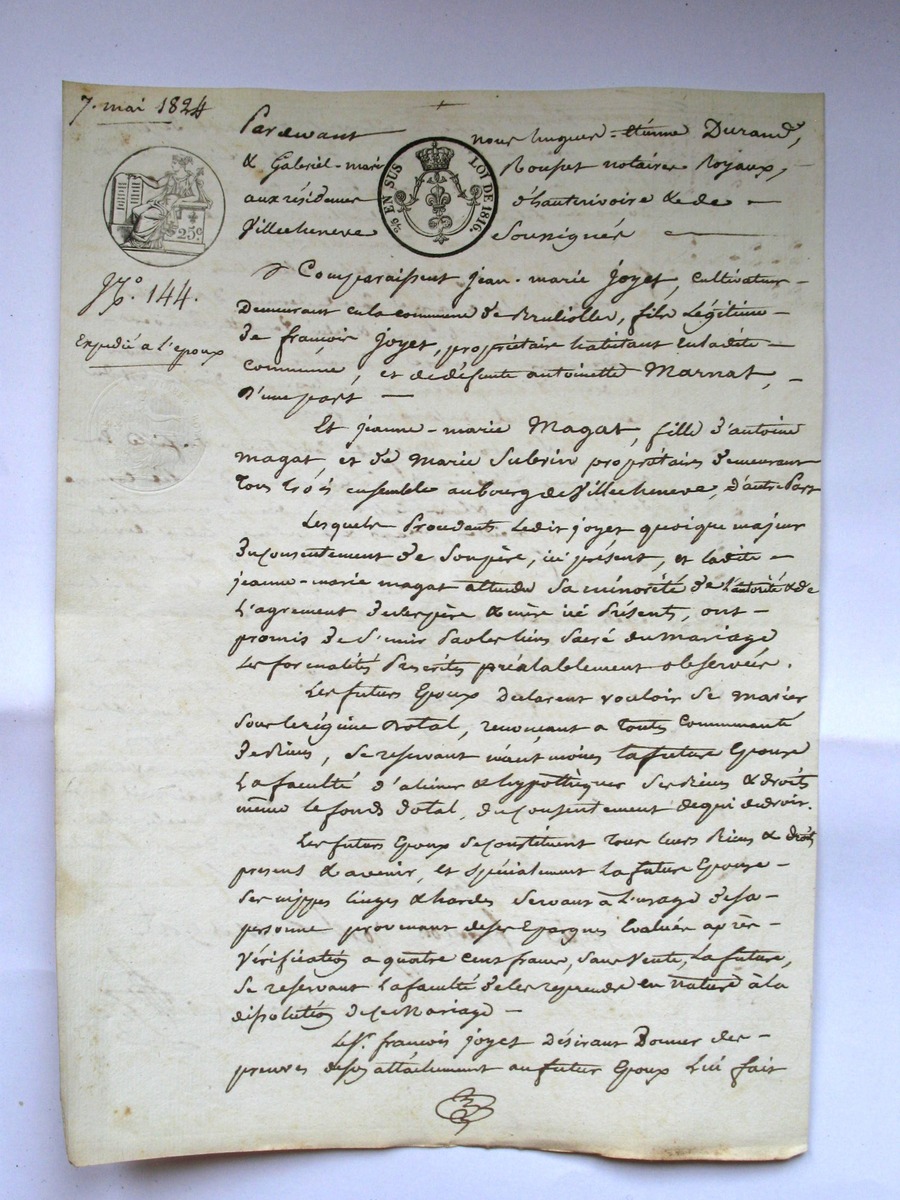 7. mai 1824
Pardevant nous hugues-étienne Durand,
& Gabriel-marie Rousset notaires Royaux,
aux résidences d'hauterivoire & de
Villecheneve Soussignés
25 EN SUS LOI DE 1816.
25c.
No. 144.
Expedié a l'epoux
Comparaissent jean-marie joyet, cultivateur
Demeurant en la commune de Brullioles, fils Légitime
de françois joyet, propriétaire habitant en ladite
commune, et de défunte antoinette Marnat,
d'une part
Et jeanne-marie Magat, fille d'antoine
magat, et de Marie Subrin propriétaires demeurant
tous trois ensemble au bourg de Villecheneve, d'autre Part
Lesquels Procedants ledit joyet quoique majeur
du consentement de son père, ici présent, et ladite
jeanne-marie magat attendu sa minorité de l'autorité & de
L'agrement de ses père & mère ici Présents, ont
promis de s'unir par les liens sacré du mariage
les formalités Prescrites préalablement observées.
Les futurs Epoux déclarent vouloir se marier
sous le régime dotal, renonçant a toute communauté
de Biens, se reservant néantmoins la future Epouse
La faculté d'aliener & hypothéquer ses Biens & droits
même le fonds dotal, du consentement de qui de droit.
Les futurs Epoux se constituent tous leurs Biens & droits
present & avenir, et spécialement la future Epouse
ses nippes linges & hardes servant à l'usage de sa
personne provenant de ses Epargnes Evalués après
Vérification a quatre cent francs, sans vente, la future,
se reservant La faculté de les reprendre en nature à la
dissolution de ce Mariage
Le sr. françois joyet désirant Donner des
preuves de son attachement au futur Epoux Lui fait